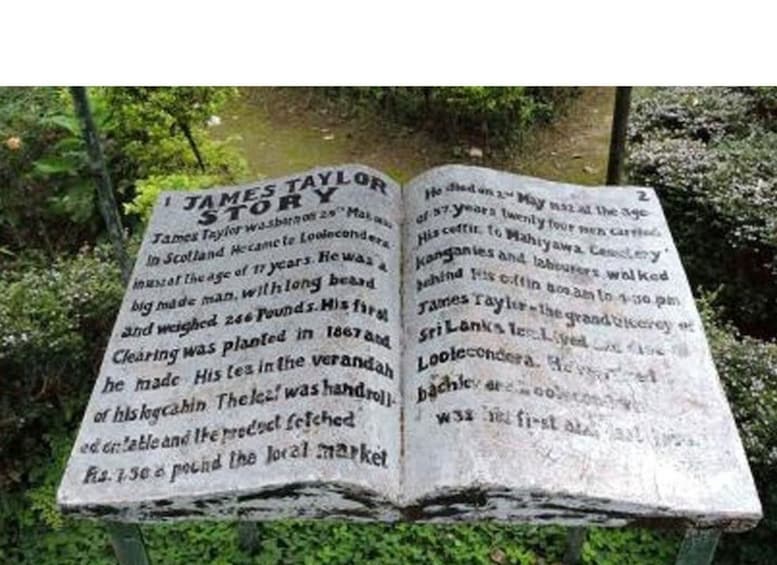 1 JAMES TAYLOR
STORY
James Taylor was born on 29th Mar
in Scotland. He came to Loolecondera
in at the age of 17 years. He was a
big made man, with long beard
and weighed 246 Pounds. His first
Clearing was planted in 1867 and
he made His tea in the verandah
of his log cabin. The leaf was handroll-
ed on table and the product fetched
Rs. 1.50 a pound the local market
2
He died on 2nd May 1892 at the age
of 57. years twenty four men carried
His coffin to Mahiyawa Cemetery.
kanganies and labourers walked
behind his coffin 8.00 am to 4.30 pm
James Taylor - the grand viceroy of
Sri Lanka tea. Lived and
Loolecondera. He
was his first and last